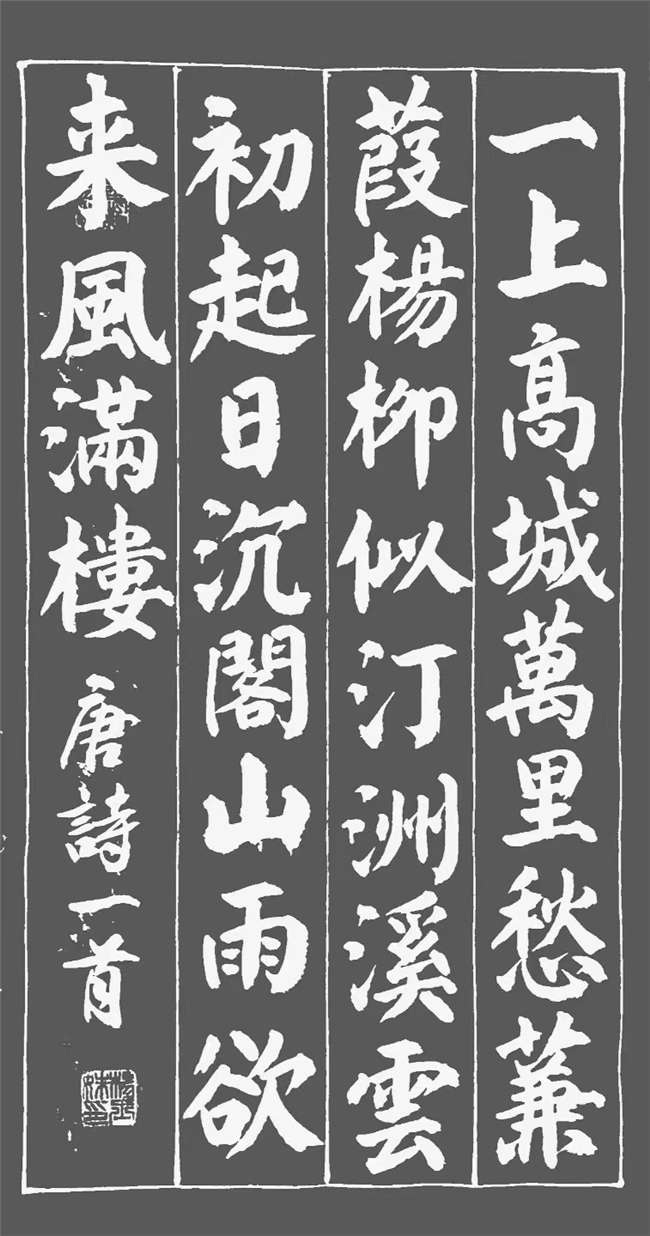 一上高城萬里愁蒹
葭楊柳似汀洲溪雲
初起日沉閣山雨欲
来風滿樓 唐詩一首